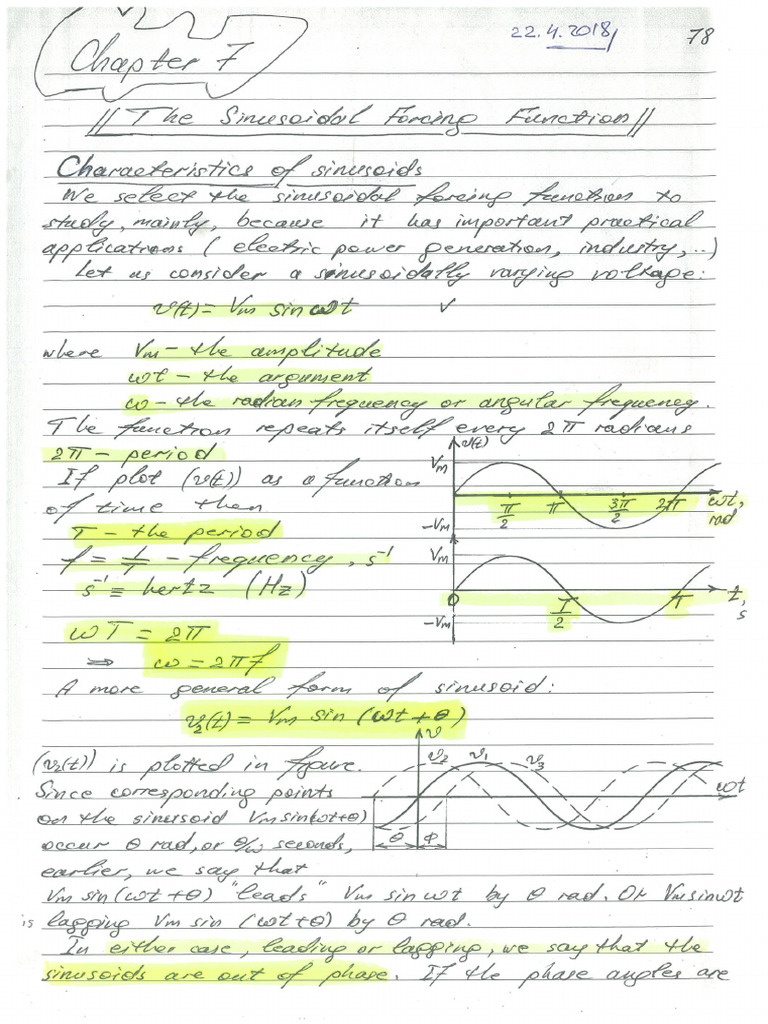 22.4.2018/
78
Chapter 7
|| The Sinusoidal Forcing Function ||
Characteristics of sinusoids
We select the sinusoidal forcing function to
study, mainly, because it has important practical
applications ( electric power generation, industry, ..)
Let us consider a sinusoidally varying voltage:
v(t) = Vm sin ωt ✓
where Vm - the amplitude
ωt - the argument
ω - the radian frequency or angular frequency.
The function repeats itself every 2π radians
2π - period
If plot (v(t)) as a function
of time then
T - the period
f = 1/T - frequency, s⁻¹
s⁻¹ ≡ hertz (Hz)
ωT = 2π
⇒ ω = 2πf
v(t)
Vm
π/2 π 3π/2 2π ωt, rad
-Vm
Vm
0 T/2 T t, s
-Vm
A more general form of sinusoid:
v₂(t) = Vm sin (ωt + θ)
(v₂(t)) is plotted in figure.
Since corresponding points
on the sinusoid Vm sin(ωt+θ)
occur θ rad, or θ/ω seconds,
earlier, we say that
v
v₂ v₁ v₃
ωt
θ Φ
Vm sin (ωt + θ) "leads" Vm sin ωt by θ rad. Or Vm sin ωt
is lagging Vm sin (ωt+θ) by θ rad.
In either case, leading or lagging, we say that the
sinusoids are out of phase. If the phase angles are